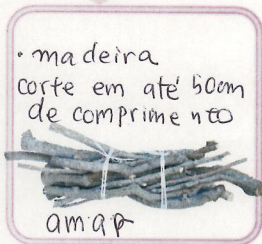 • madeira
corte em até 50cm
de comprimento
amap